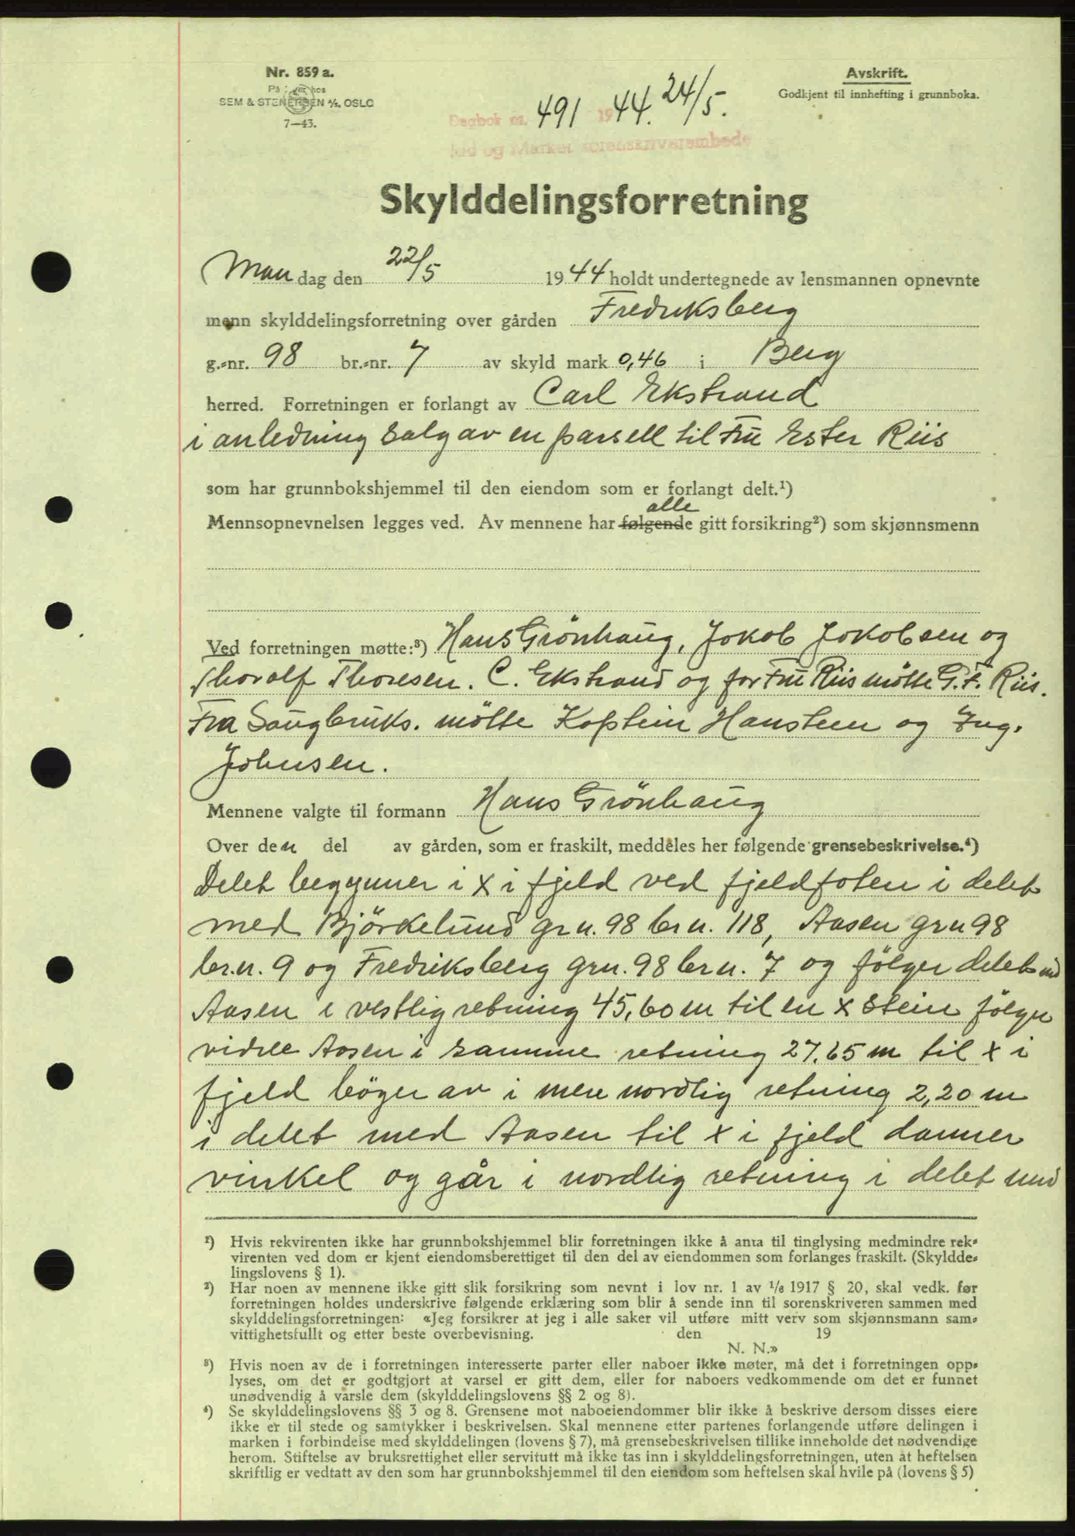 Nr. 859 a.
På lager hos
SEM & STENERSEN A/S. OSLO
7—43.
Avskrift.
Godkjent til innhefting i grunnboka.
Dagbok nr. 491 1944. 24/5.
Idd og Marker sorenskriverembede
Skylddelingsforretning
Man dag den 22/5 1944 holdt undertegnede av lensmannen opnevnte
menn skylddelingsforretning over gården Fredriksberg
g.-nr. 98 br.-nr. 7 av skyld mark 0,46 i Berg
herred. Forretningen er forlangt av Carl Ekstrand
i anledning salg av en parsell til Fru Ester Riis
som har grunnbokshjemmel til den eiendom som er forlangt delt.¹)
alle
Mennsopnevnelsen legges ved. Av mennene har følgende gitt forsikring²) som skjønnsmenn
Ved forretningen møtte:³) Hans Grönhaug, Jokob Jokobsen og
Thoralf Thoresen. C. Ekstrand og for Fru Riis mötte G. F. Riis.
Fra Saugbruks. mötte Kaptein Hansteen og Ing.
Johnsen.
Mennene valgte til formann Hans Grönhaug
Over den del av gården, som er fraskilt, meddeles her følgende grensebeskrivelse.⁴)
Delet begynner i X i fjeld ved fjeldfoten i delet
med Björkelund gr n. 98 br n. 118, Aasen gr n 98
br. n. 9 og Fredriksberg gr n. 98 br n. 7 og fölger delet md
Aasen i vestlig retning 45,60 m til en X Stein fölger
videre Aasen i samme retning 27.65 m til X i
fjeld böger av i mere nordlig retning 2,20 m
i delet med Aasen til X i fjeld danner
vinkel og går i nordlig retning i delet med
¹) Hvis rekvirenten ikke har grunnbokshjemmel blir forretningen ikke å anta til tinglysing medmindre rek-
virenten ved dom er kjent eiendomsberettiget til den del av eiendommen som forlanges fraskilt. (Skyldde-
lingslovens § 1).
²) Har noen av mennene ikke gitt slik forsikring som nevnt i lov nr. 1 av 1/6 1917 § 20, skal vedk. før
forretningen holdes underskrive følgende erklæring som blir å sende inn til sorenskriveren sammen med
skylddelingsforretningen: «Jeg forsikrer at jeg i alle saker vil utføre mitt verv som skjønnsmann sam-
vittighetsfullt og etter beste overbevisning. den 19
N. N.»
³) Hvis noen av de i forretningen interesserte parter eller naboer ikke møter, må det i forretningen opp-
lyses, om det er godtgjort at varsel er gitt dem, eller for naboers vedkommende om det er funnet
unødvendig å varsle dem (skylddelingslovens §§ 2 og 8).
⁴) Se skylddelingslovens §§ 3 og 8. Grensene mot naboeiendommer blir ikke å beskrive dersom disses eiere
ikke er til stede og samtykker i beskrivelsen. Skal mennene etter partenes forlangende utføre delingen i
marken i forbindelse med skylddelingen (lovens § 7), må grensebeskrivelsen tillike inneholde det nødvendige
herom. Stiftelse av bruksrettighet eller servitutt må ikke tas inn i skylddelingsforretningen, uten at heftelsen
skriftlig er vedtatt av den som har grunnbokshjemmel til den eiendom som heftelsen skal hvile på (lovens § 5)